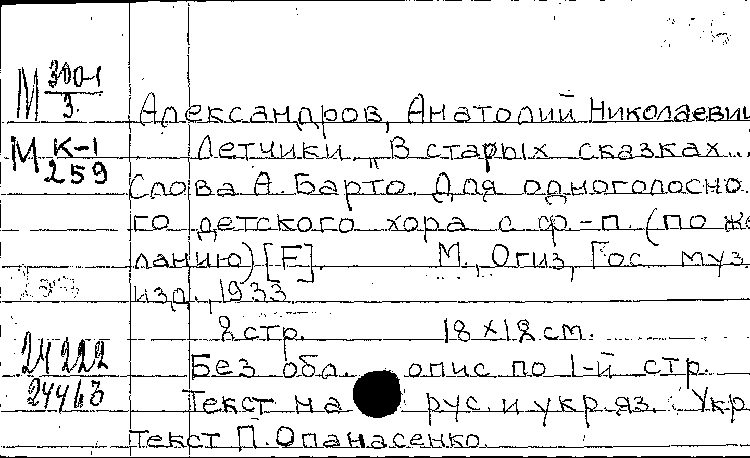 М 300-1
3.
Александров, Анатолий Николаевич
М К-1
259
Летчики. „В старых сказках...
Слова А. Барто. Для одноголосно-
го детского хора с ф-п. (по же-
ланию) [F]. М., Огиз, Гос муз
изд., 1933
2 стр. 18×18 см.
24222
Без обл. опис по 1-й стр.
24463
Текст на рус. и укр. яз. Укр
текст П. Опанасенко.